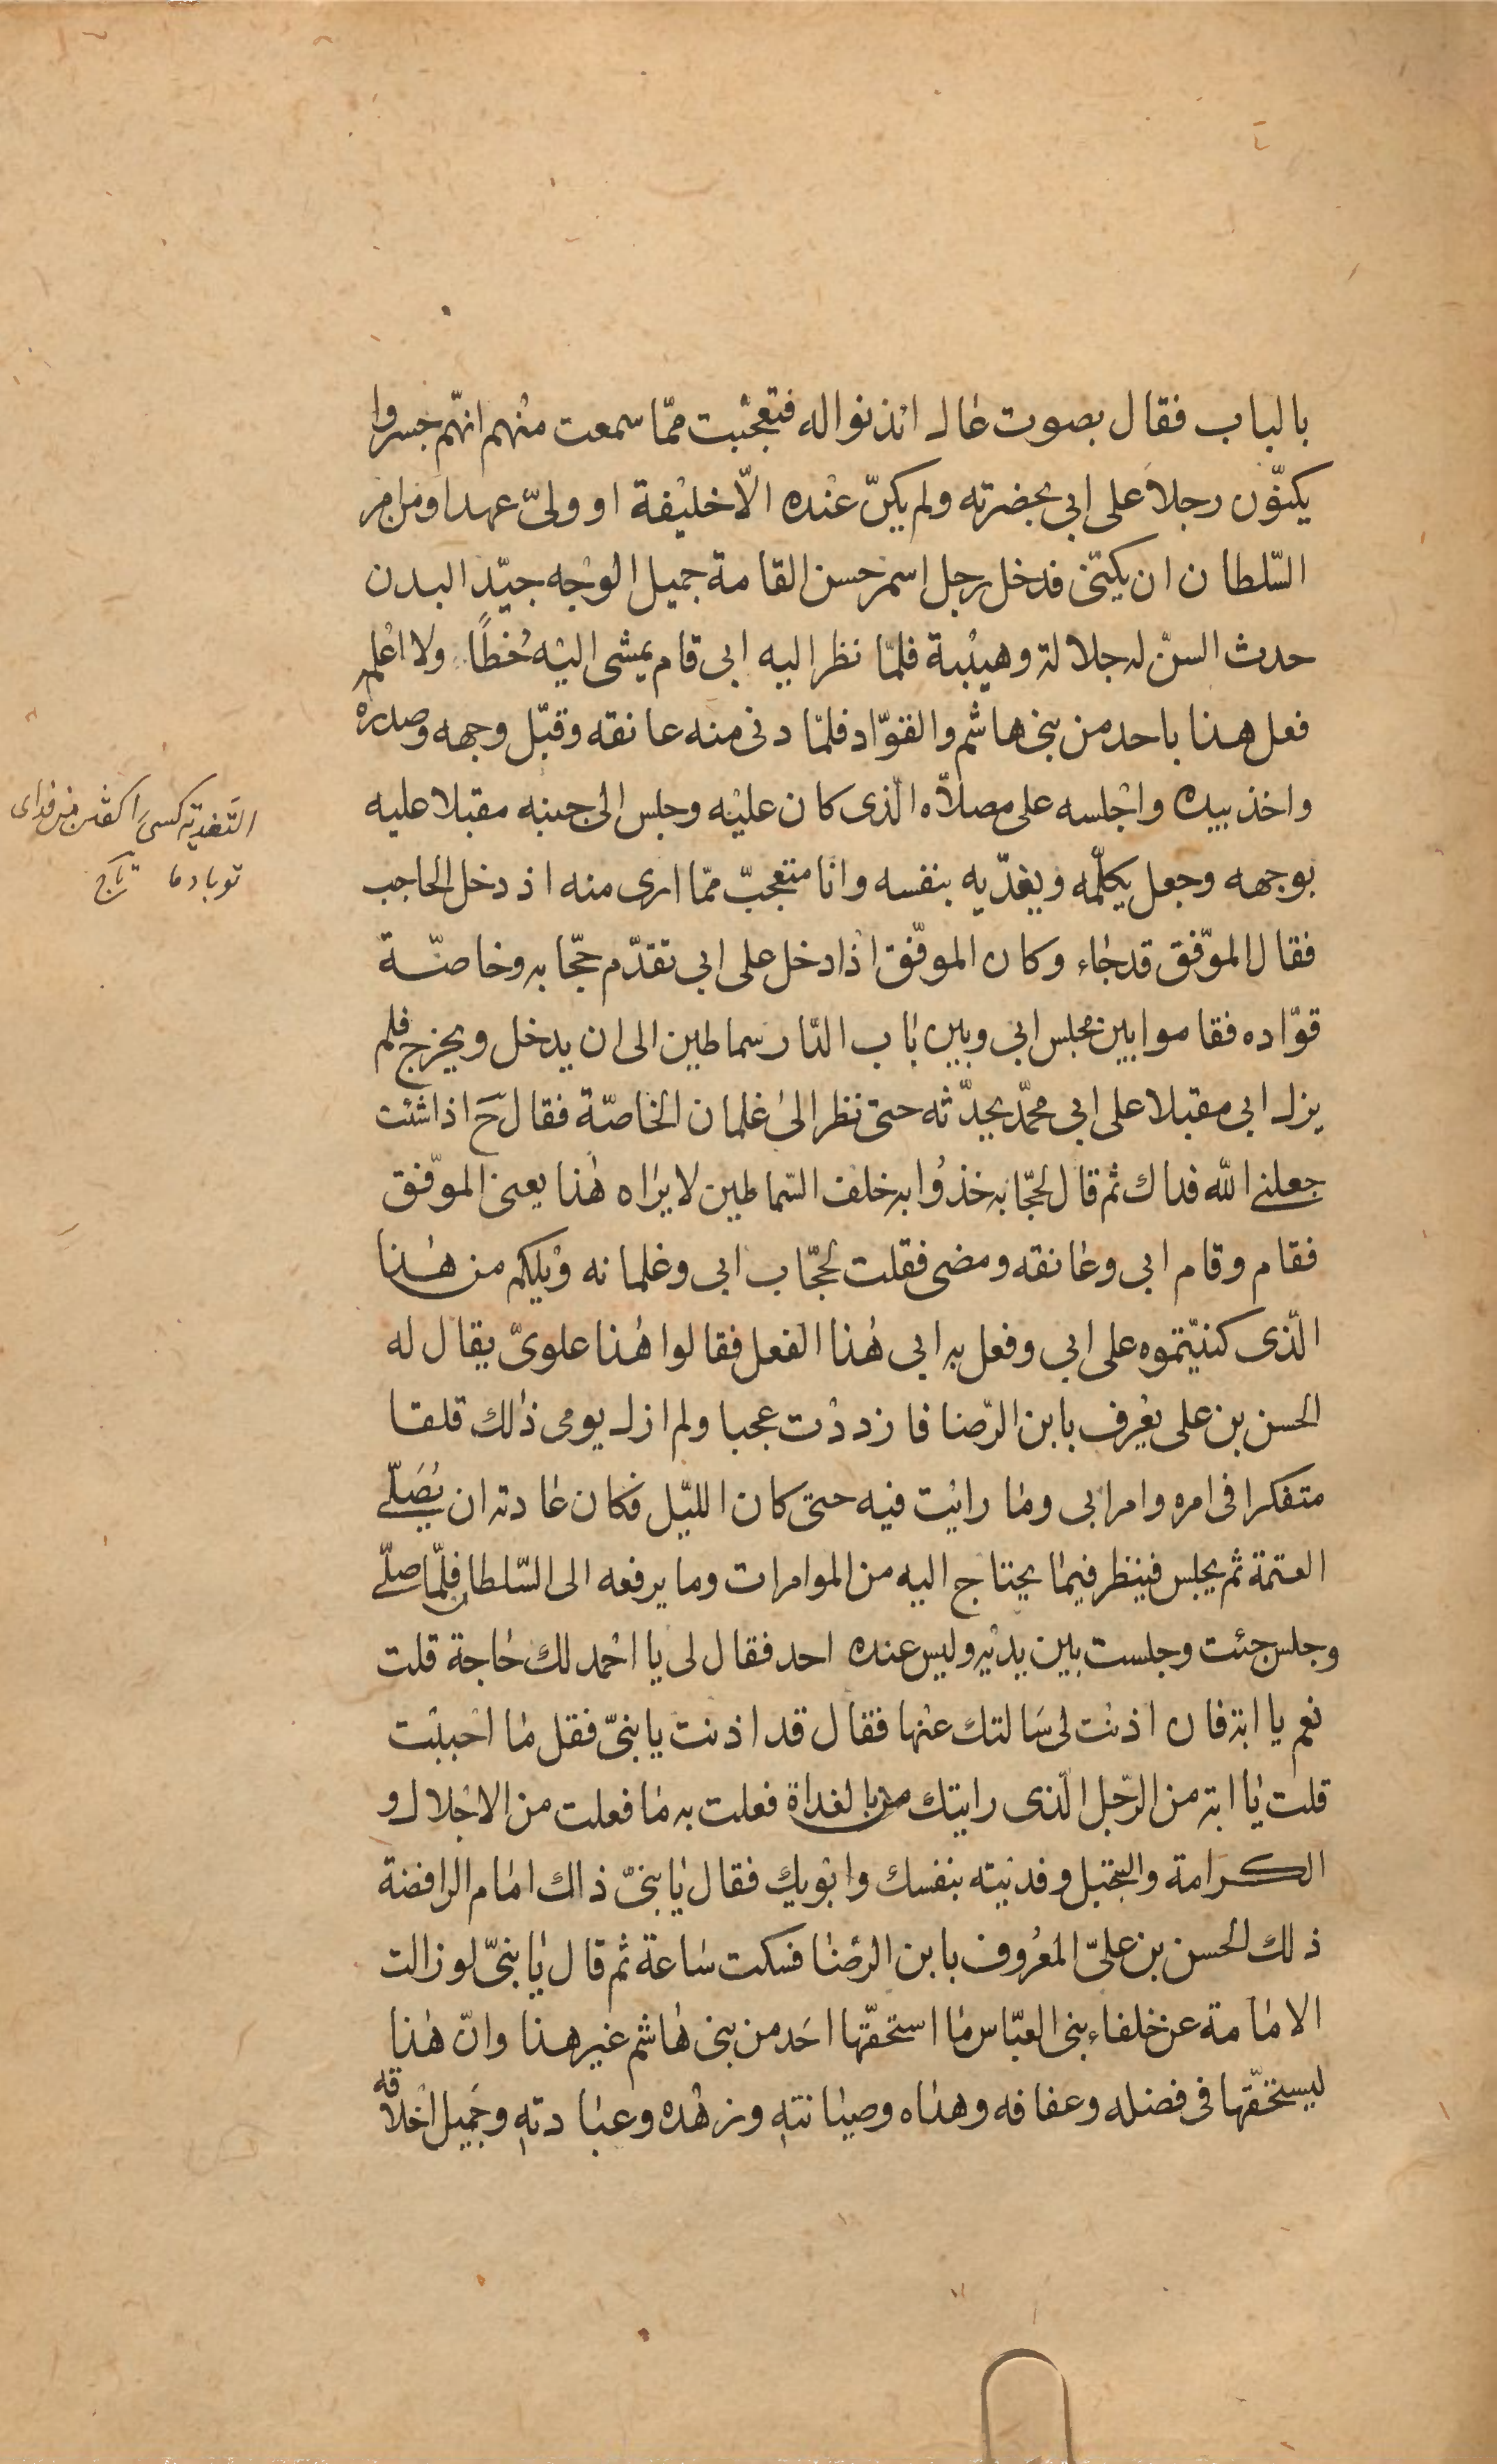 بالباب فقال بصوت عال ائذنوا له فتعجبت ممّا سمعت منهم انهّم جسروا
يكنّون رجلا على ابي بحضرته ولم يكنّ عنده الّا خليفة او ولىّ عهد او من امر
السّلطان ان يكنّى فدخل رجل اسمر حسن القامة جميل الوجه جيّد البدن
حدث السنّ له جلالة وهيبة فلمّا نظر اليه ابى قام يمشى اليه خُطاً ولا اعلمه
فعل هذا باحد من بنى هاشم والقوّاد فلمّا دنى منه عانقه وقبّل وجهه وصدره
واخذ بيده واجلسه على مصلّاه الّذى كان عليه وجلس الى جنبه مقبلا عليه
بوجهه وجعل يكلّمه ويفدّيه بنفسه وانا متعجبّ ممّا ارى منه اذ دخل الحاجب
فقال الموّفق قد جاء وكان الموفّق اذا دخل على ابي تقدّم حجّابه وخاصّة
قوّاده فقاموا بين مجلس ابى وبين باب الدّار سماطين الى ان يدخل ويخرج فلم
يزل ابى مقبلا على ابي محمّد يحدّثه حتى نظر الى غلمان الخاصّة فقال حَ اذا شئت
جعلنى اللّه فداك ثم قال لحجّابه خذُوا به خلف السّماطين لا يراه هذا يعنى الموّفق
فقام وقام ابى وعانقه ومضى فقلت لحجّاب ابى وغلمانه ويلكم من هذا
الّذى كنيّتموه على ابى وفعل به ابى هذا الفعل فقالوا هذا علوىّ يقال له
الحسن بن على يعُرف بابن الرّضا فازددت عجبا ولم ازل يومى ذلك قلقا
متفكرا فى امره وامر ابى وما رايت فيه حتى كان الليّل فكان عادته ان يُصَلّے
العتمة ثم يجلس فينظر فيما يحتاج اليه من الموامرات وما يرفعه الى السّلطان فلمّا صلّے
وجلس جئت وجلست بين يديه وليس عنده احد فقال لى يا احمد لك حاجة قلت
نعم يا ابة فان اذنت لى سَالتك عنها فقال قد اذنت يا بنىّ فقل ما احببت
قلت يا ابة من الرّجل الّذى رايتك بالغداة فعلت به ما فعلت من الاجلال و
الكرامة والتبجيل وفديته بنفسك وابويك فقال يا بنىّ ذاك امام الرافضة
ذلك الحسن بن علىّ المعُروف بابن الرضا فسكت ساعة ثم قال يا بنىّ لو زالت
الامامة عن خلفاء بنى العبّاس ما استحقّها احَد من بنى هاشم غير هذا وانّ هذا
ليستحقّها فى فضله وعفافه وهداه وصيانته وزهده وعبادته وجَميل اخلاقه
التفدية كسى را گفتن من فداى
تو بادما تاج